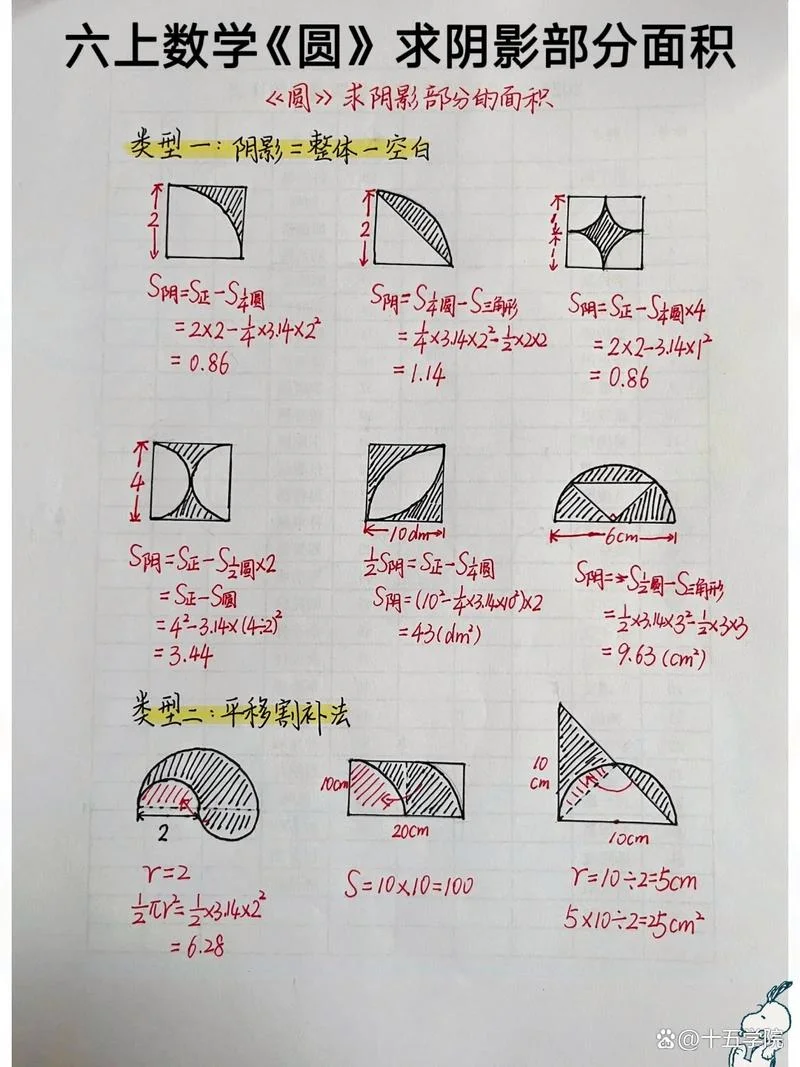 六上数学《圆》求阴影部分面积
《圆》求阴影部分的面积
类型一：阴影＝整体－空白
2
2
1
1
S阴=S正-S¼圆
=2×2-¼×3.14×2²
=0.86
S阴=S¼圆-S三角形
=¼×3.14×2²-½×2×2
=1.14
S阴=S正-S¼圆×4
=2×2-3.14×1²
=0.86
4
10dm
6cm
S阴=S正-S½圆×2
=S正-S圆
=4²-3.14×(4÷2)²
=3.44
½S阴=S正-S¼圆
S阴=(10²-¼×3.14×10²)×2
=43(dm²)
S阴=S½圆-S三角形
=½×3.14×3²-½×3×3
=9.63(cm²)
类型二：平移割补法
2
10cm
20cm
10
cm
10cm
r=2
½πr²=½×3.14×2²
=6.28
S=10×10=100
r=10÷2=5cm
5×10÷2=25cm²
@十五学院